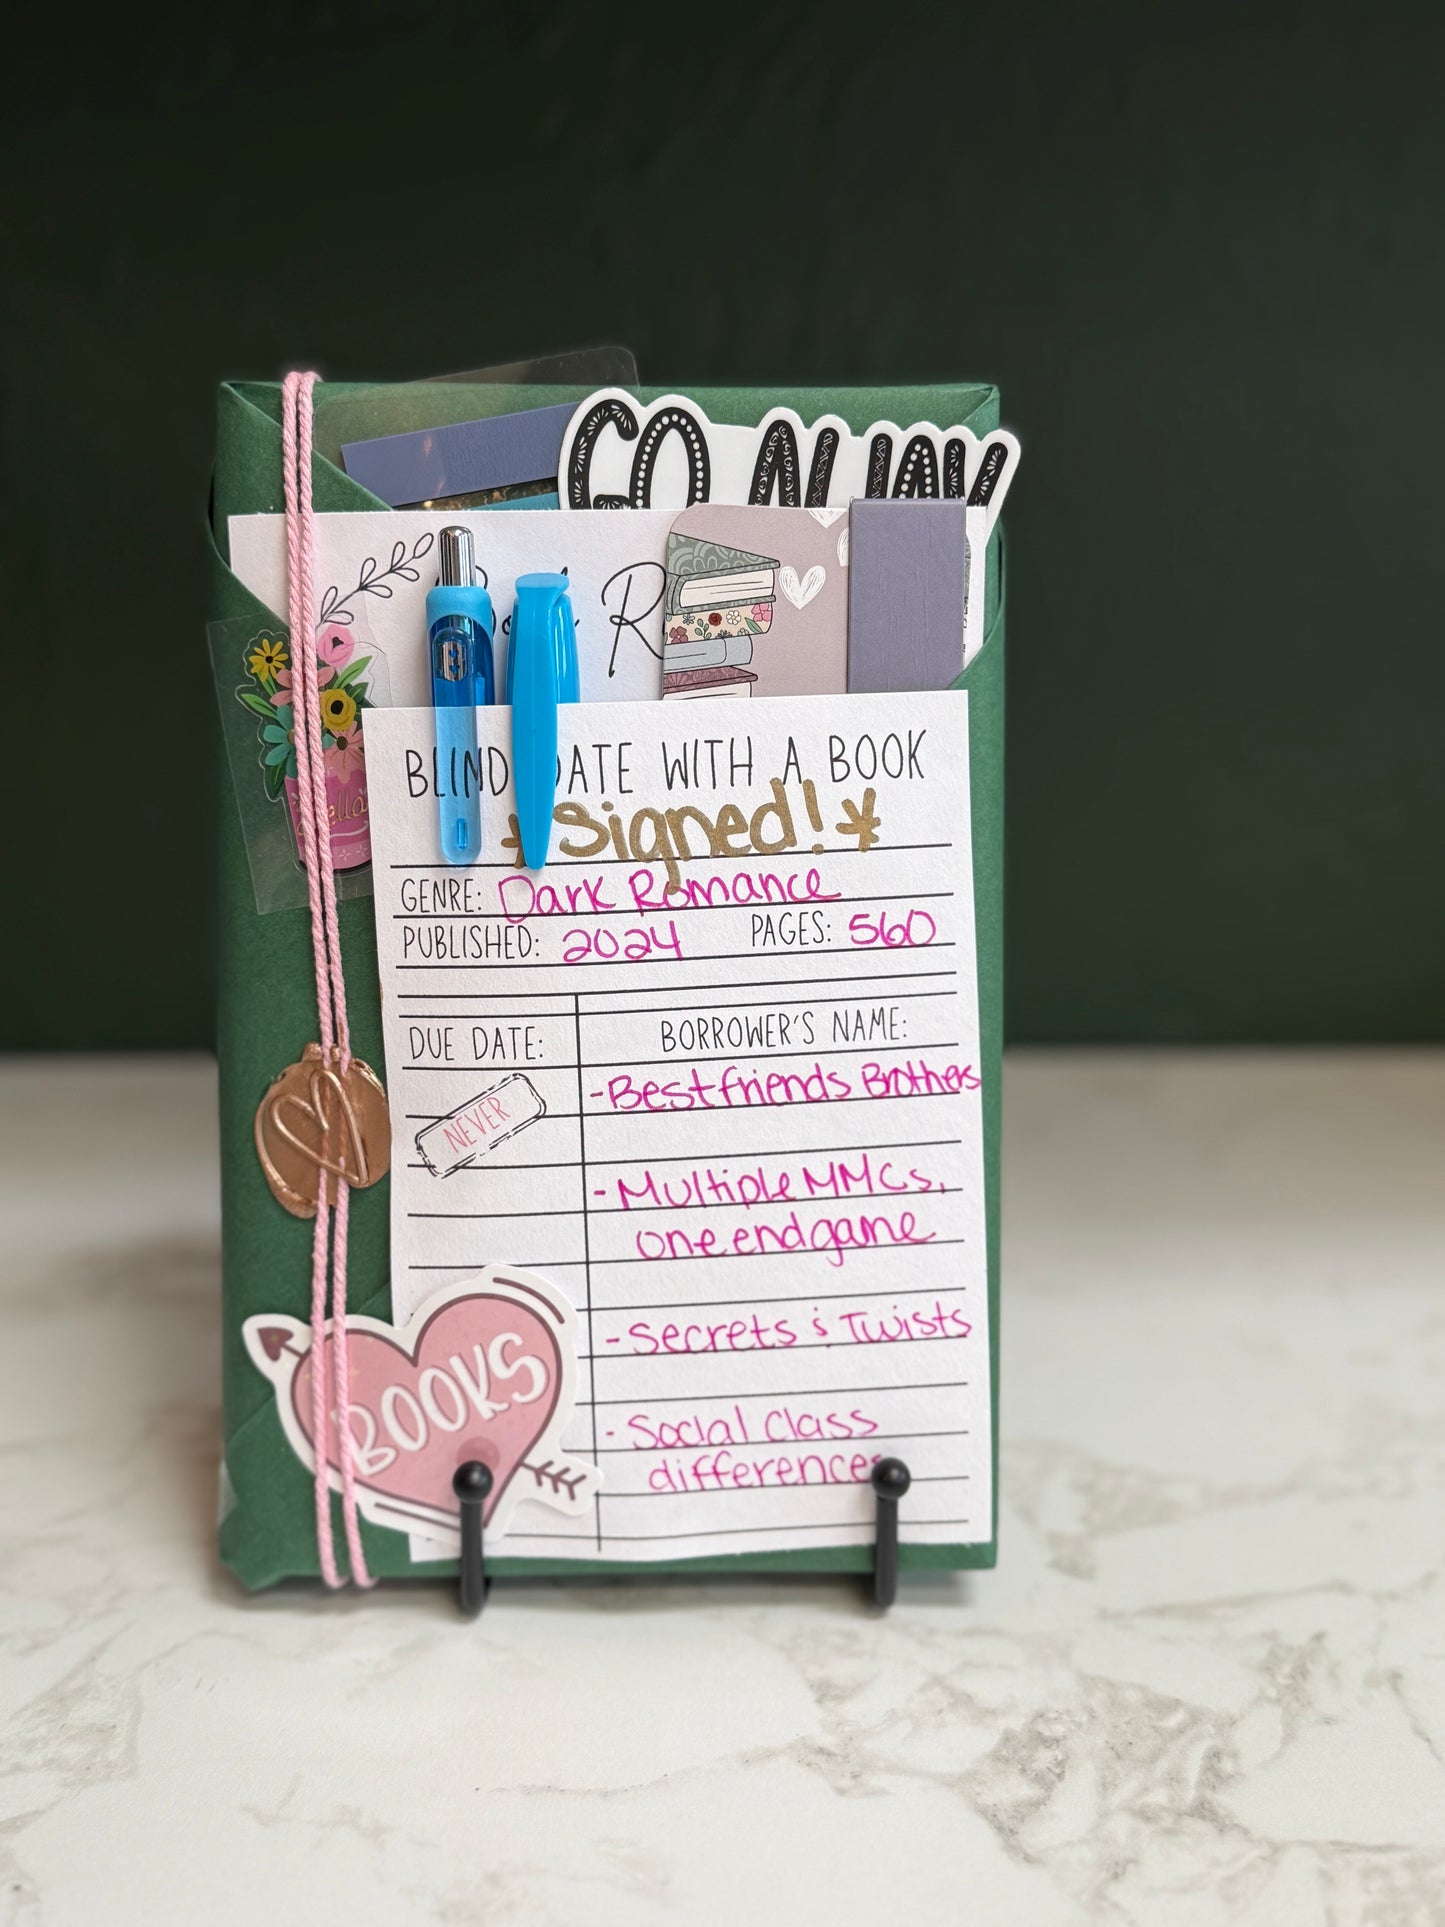 GO AWAY
BLIND DATE WITH A BOOK
*Signed!*
GENRE: Dark Romance
PUBLISHED: 2024 PAGES: 560
DUE DATE: BORROWER'S NAME:
NEVER
-Best friends Brothers
-Multiple MMCs,
one endgame
-Secrets & Twists
-Social Class
differences
BOOKS